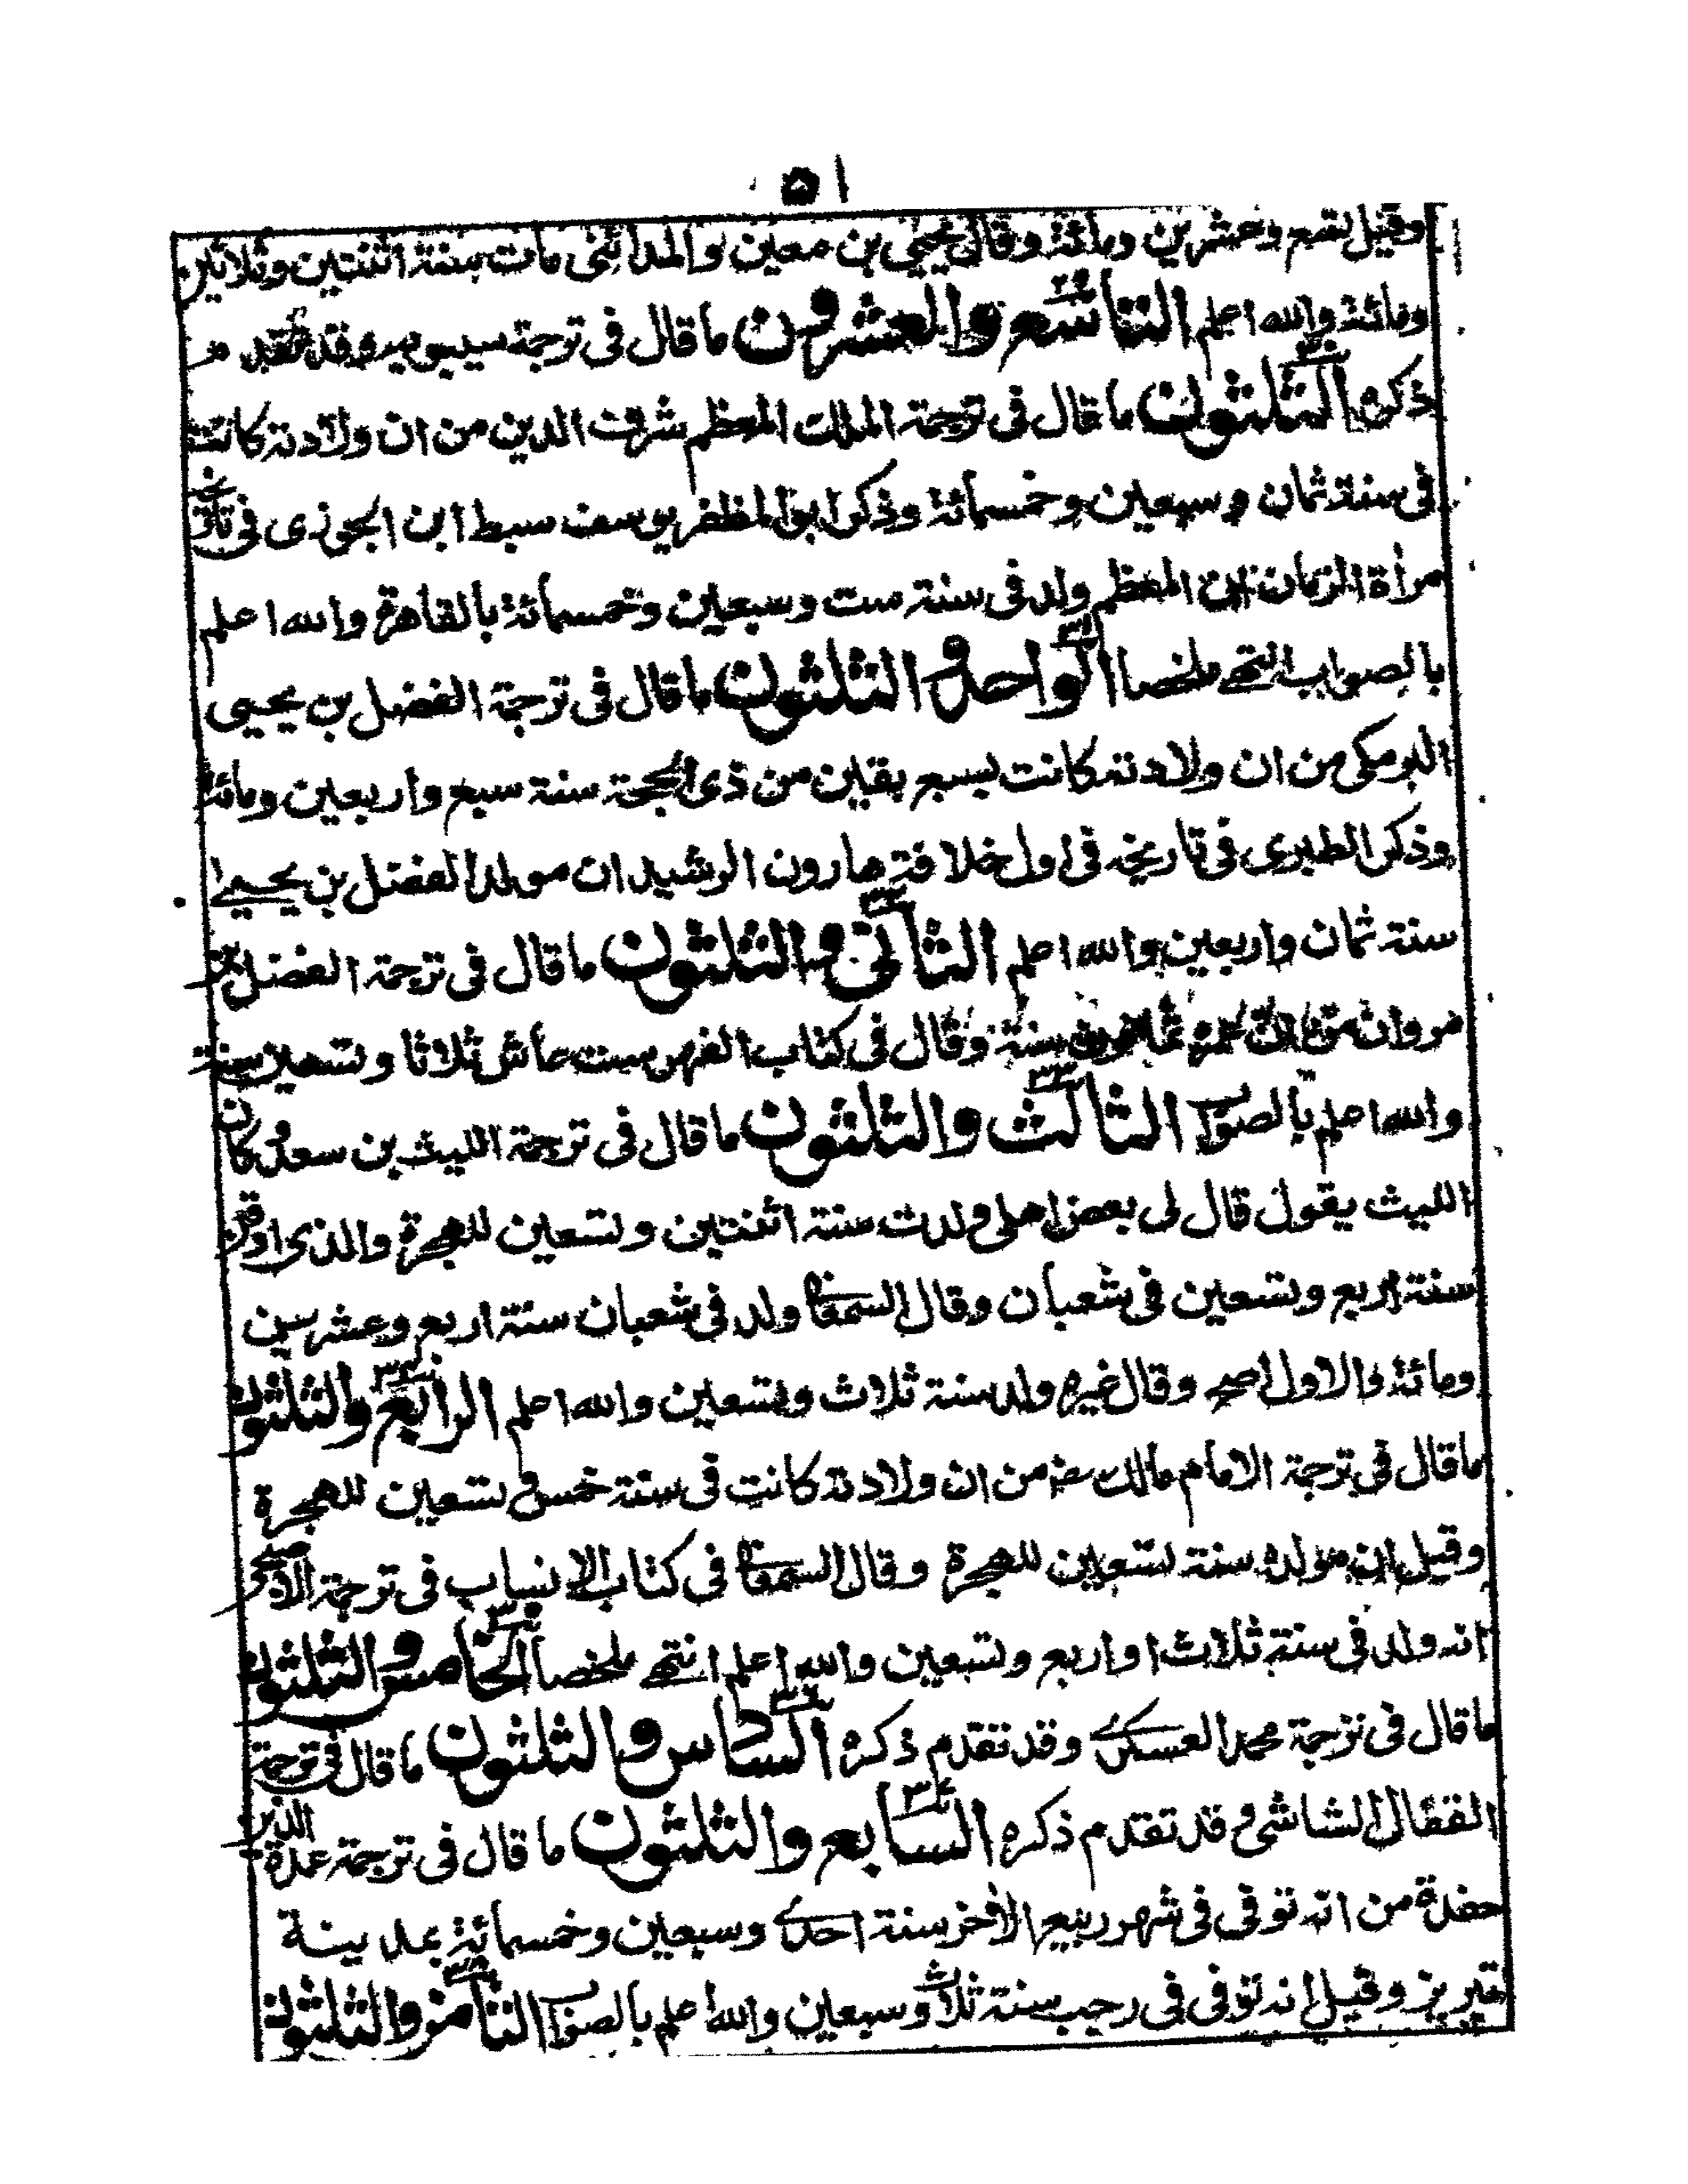 ٥١
وقيل تسع وعشرين ومائة وقال يحيى بن معين والمدائنى مات سنة اثنتين وثلاثين
ومائة والله اعلم التاسع والعشرون ما قال فى ترجمة سيبويه وقد تقدم
ذكره الثلثون ما قال فى ترجمة الملك المعظم شرف الدين من ان ولادته كانت
فى سنة ثمان وسبعين وخمسمائة وذكر ابو المظفر يوسف سبط ابن الجوزى فى تاريخ
مرأة الزمان ان المعظم ولد فى سنة ست وسبعين وخمسمائة بالقاهرة والله اعلم
بالصواب انتهے ملخصا الواحد والثلثون ما قال فى ترجمة الفضل بن يحيى
البرمكى من ان ولادته كانت لسبع بقين من ذى الحجة سنة سبع واربعين ومائة
وذكر الطبرى فى تاريخه فى اول خلافة هارون الرشيد ان مولد الفضل بن يحيے
سنة ثمان واربعين والله اعلم الثانى والثلثون ما قال فى ترجمة الفضل بن
مروان سنة وقال فى كتاب الفهرست عاش ثلاثا وتسعين سنة
والله اعلم بالصواب الثالث والثلثون ما قال فى ترجمة الليث بن سعد وكان
الليث يقول قال لى بعض اهلى ولدت سنة اثنتين وتسعين للهجرة والذى اوقن
سنة اربع وتسعين فى شعبان وقال السمعانى ولد فى شعبان سنة اربع وعشرين
ومائة والاول اصح وقال غيره ولد سنة ثلاث وتسعين والله اعلم الرابع والثلثون
ما قال فى ترجمة الامام مالك رضـ من ان ولادته كانت فى سنة خمس وتسعين للهجرة
وقيل ان مولده سنة تسعين للهجرة وقال السمعانى فى كتاب الانساب فى ترجمة الاصبحى
انه ولد فى سنة ثلاث او اربع وتسعين والله اعلم انتهے ملخصا الخامس والثلثون
ما قال فى ترجمة محمد العسكرے وقد تقدم ذكره السادس والثلثون ما قال فى ترجمة
القفال الشاشى وقد تقدم ذكره السابع والثلثون ما قال فى ترجمة عمدة الدين
حفدة من انه توفى فى شهر ربيع الاخر سنة احدے وسبعين وخمسمائة بمدينة
تبريز وقيل انه توفى فى رجب سنة ثلاث وسبعين والله اعلم بالصواب الثامن والثلثون